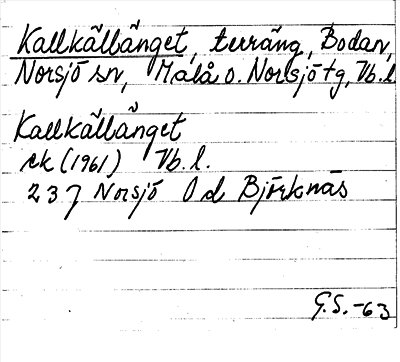 Kallkällänget, terräng, Bodan,
Norsjö sn, Malå o. Norsjö tg, Vb. l.
Kallkällänget
ek (1961) Vb. l.
237 Norsjö 0 d Björknäs
G.S. -63